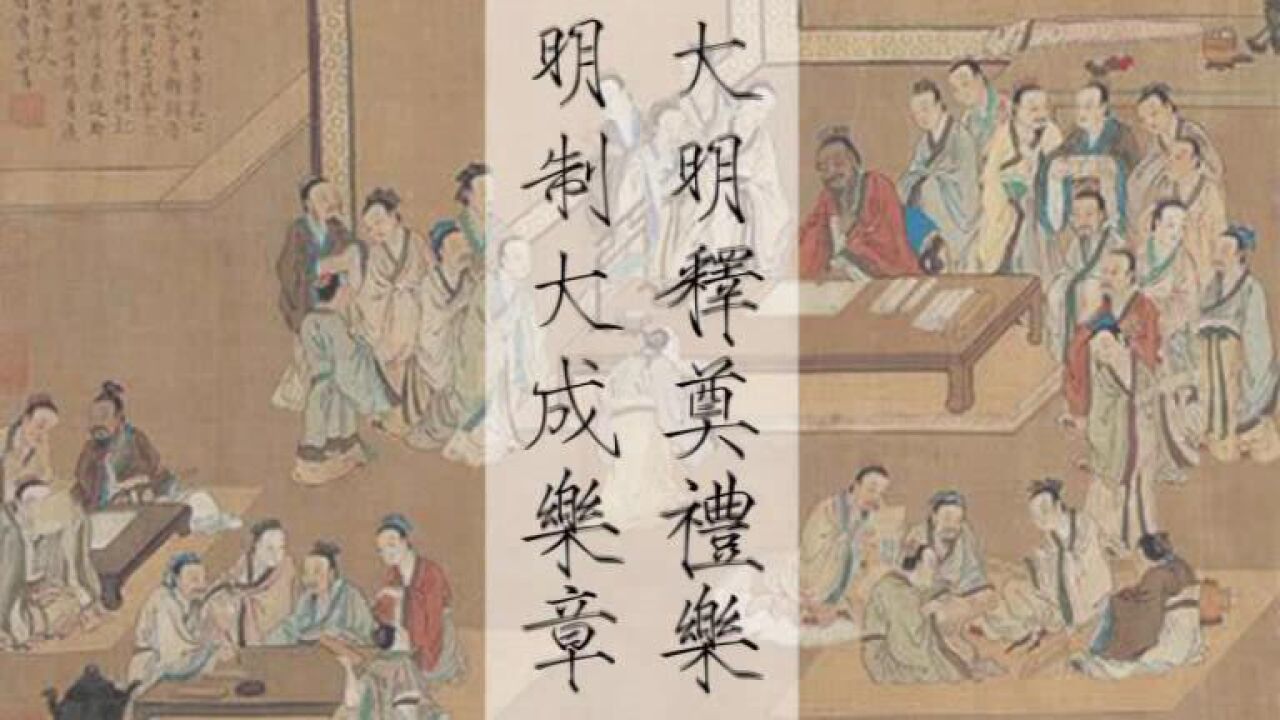 大明釋奠禮樂
明制大成樂章